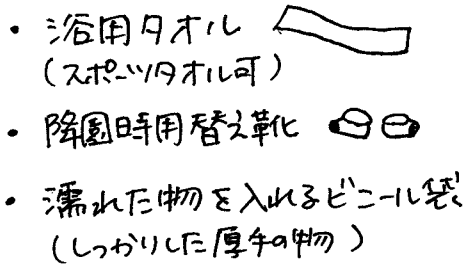 ・浴用タオル
(スポーツタオル可)
・降園時用替え靴
・濡れた物を入れるビニール袋
(しっかりした厚手の物)